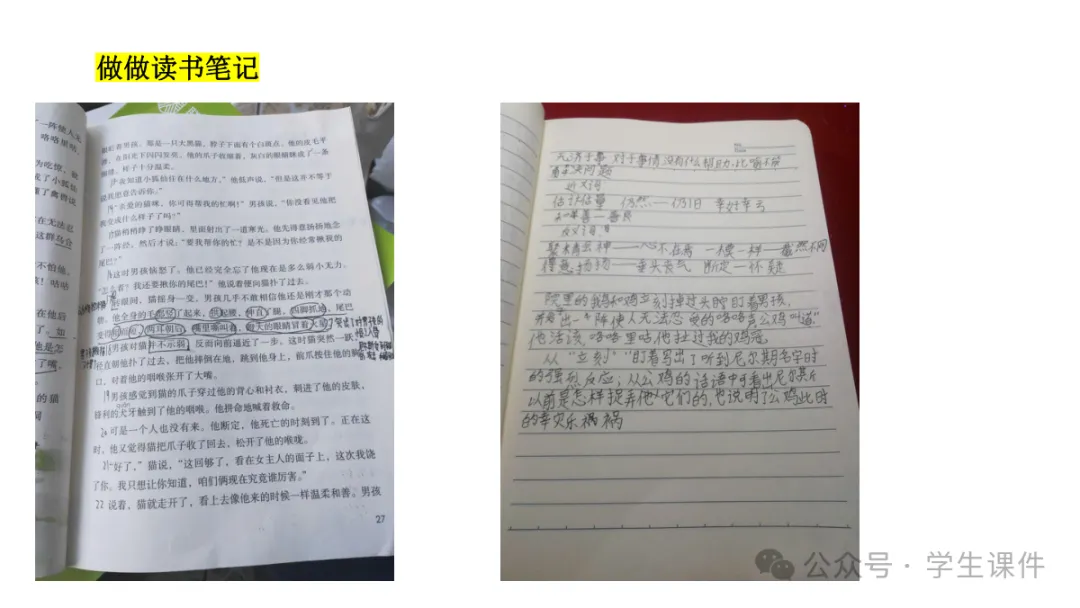 做做读书笔记
一阵使人无
咯咯里咕，
眼盯着男孩，那是一只大黑猫，脖子下面有个白斑点，他的皮毛平
滑，在阳光下闪闪发亮。他的爪子收缩着，灰白的眼睛眯成了一条
细缝，样子十分温柔。
“我知道小狐仙住在什么地方，”他低声说，“但是这并不等于
说我愿意告诉你。”
“亲爱的猫咪，你可得帮我的忙啊！”男孩说，“你没看见他把
我变成什么样子了吗？”
猫稍稍睁了睁眼睛，里面射出了一道寒光。他先得意扬扬地念
了一阵经，然后才说：“要我帮你的忙？是不是因为你经常揪我的
尾巴？”
这时男孩恼怒了。他已经完全忘了他现在是多么弱小无力。
“怎么着？我还要揪你的尾巴！”他说着便向猫扑了过去。
转眼间，猫摇身一变，男孩几乎不敢相信他还是刚才那个动
物。他全身的毛都竖了起来，拱起腰，伸直了腿，四脚抓地，尾巴
变得，两耳朝后，嘴里嘶叫着，瞪大的眼睛冒着火星。
男孩对猫并不示弱，反而向前逼近了一步。这时猫突然一跃，
径直朝他扑了过去，把他摔倒在地，跳到他身上，前爪按住他的
口，对着他的咽喉张开了大嘴。
19 男孩感觉到猫的爪子穿过他的背心和衬衣，刺进了他的皮肤，
锋利的犬牙触到了他的咽喉。他拼命地喊着救命。
20 可是一个人也没有来。他断定，他死亡的时刻到了。正在这
时，他又觉得猫把爪子收了回去、松开了他的喉咙。
21 “好了，”猫说，“这回够了，看在女主人的面子上，这次我饶
了你。我只想让你知道，咱们俩现在究竟谁厉害。”
22 说着，猫就走开了，看上去像他来的时候一样温柔和善。男孩
27
无济于事 对于事情没有什么帮助，比喻不能
解决问题
近义词
估计估量 仍然——仍旧 幸好幸云
和善—善良
反义词
聚精会神——心不在焉 一模一样—截然不同
得意扬扬——垂头丧气 断定—怀疑
院里的鹅和鸡立刻掉过头盯着男孩，
发出一阵使人无法忍受的咯咯声公鸡叫道，
他活该，咯咯里咕，他扯过我的鸡冠。
从“立刻”“盯着写出了听到尼尔斯名字时
的强烈反应；从公鸡的话语中可看出尼尔斯
以前是怎样捉弄他它们的，也说明了公鸡此时
的幸灾乐祸祸
公众号 · 学生课件